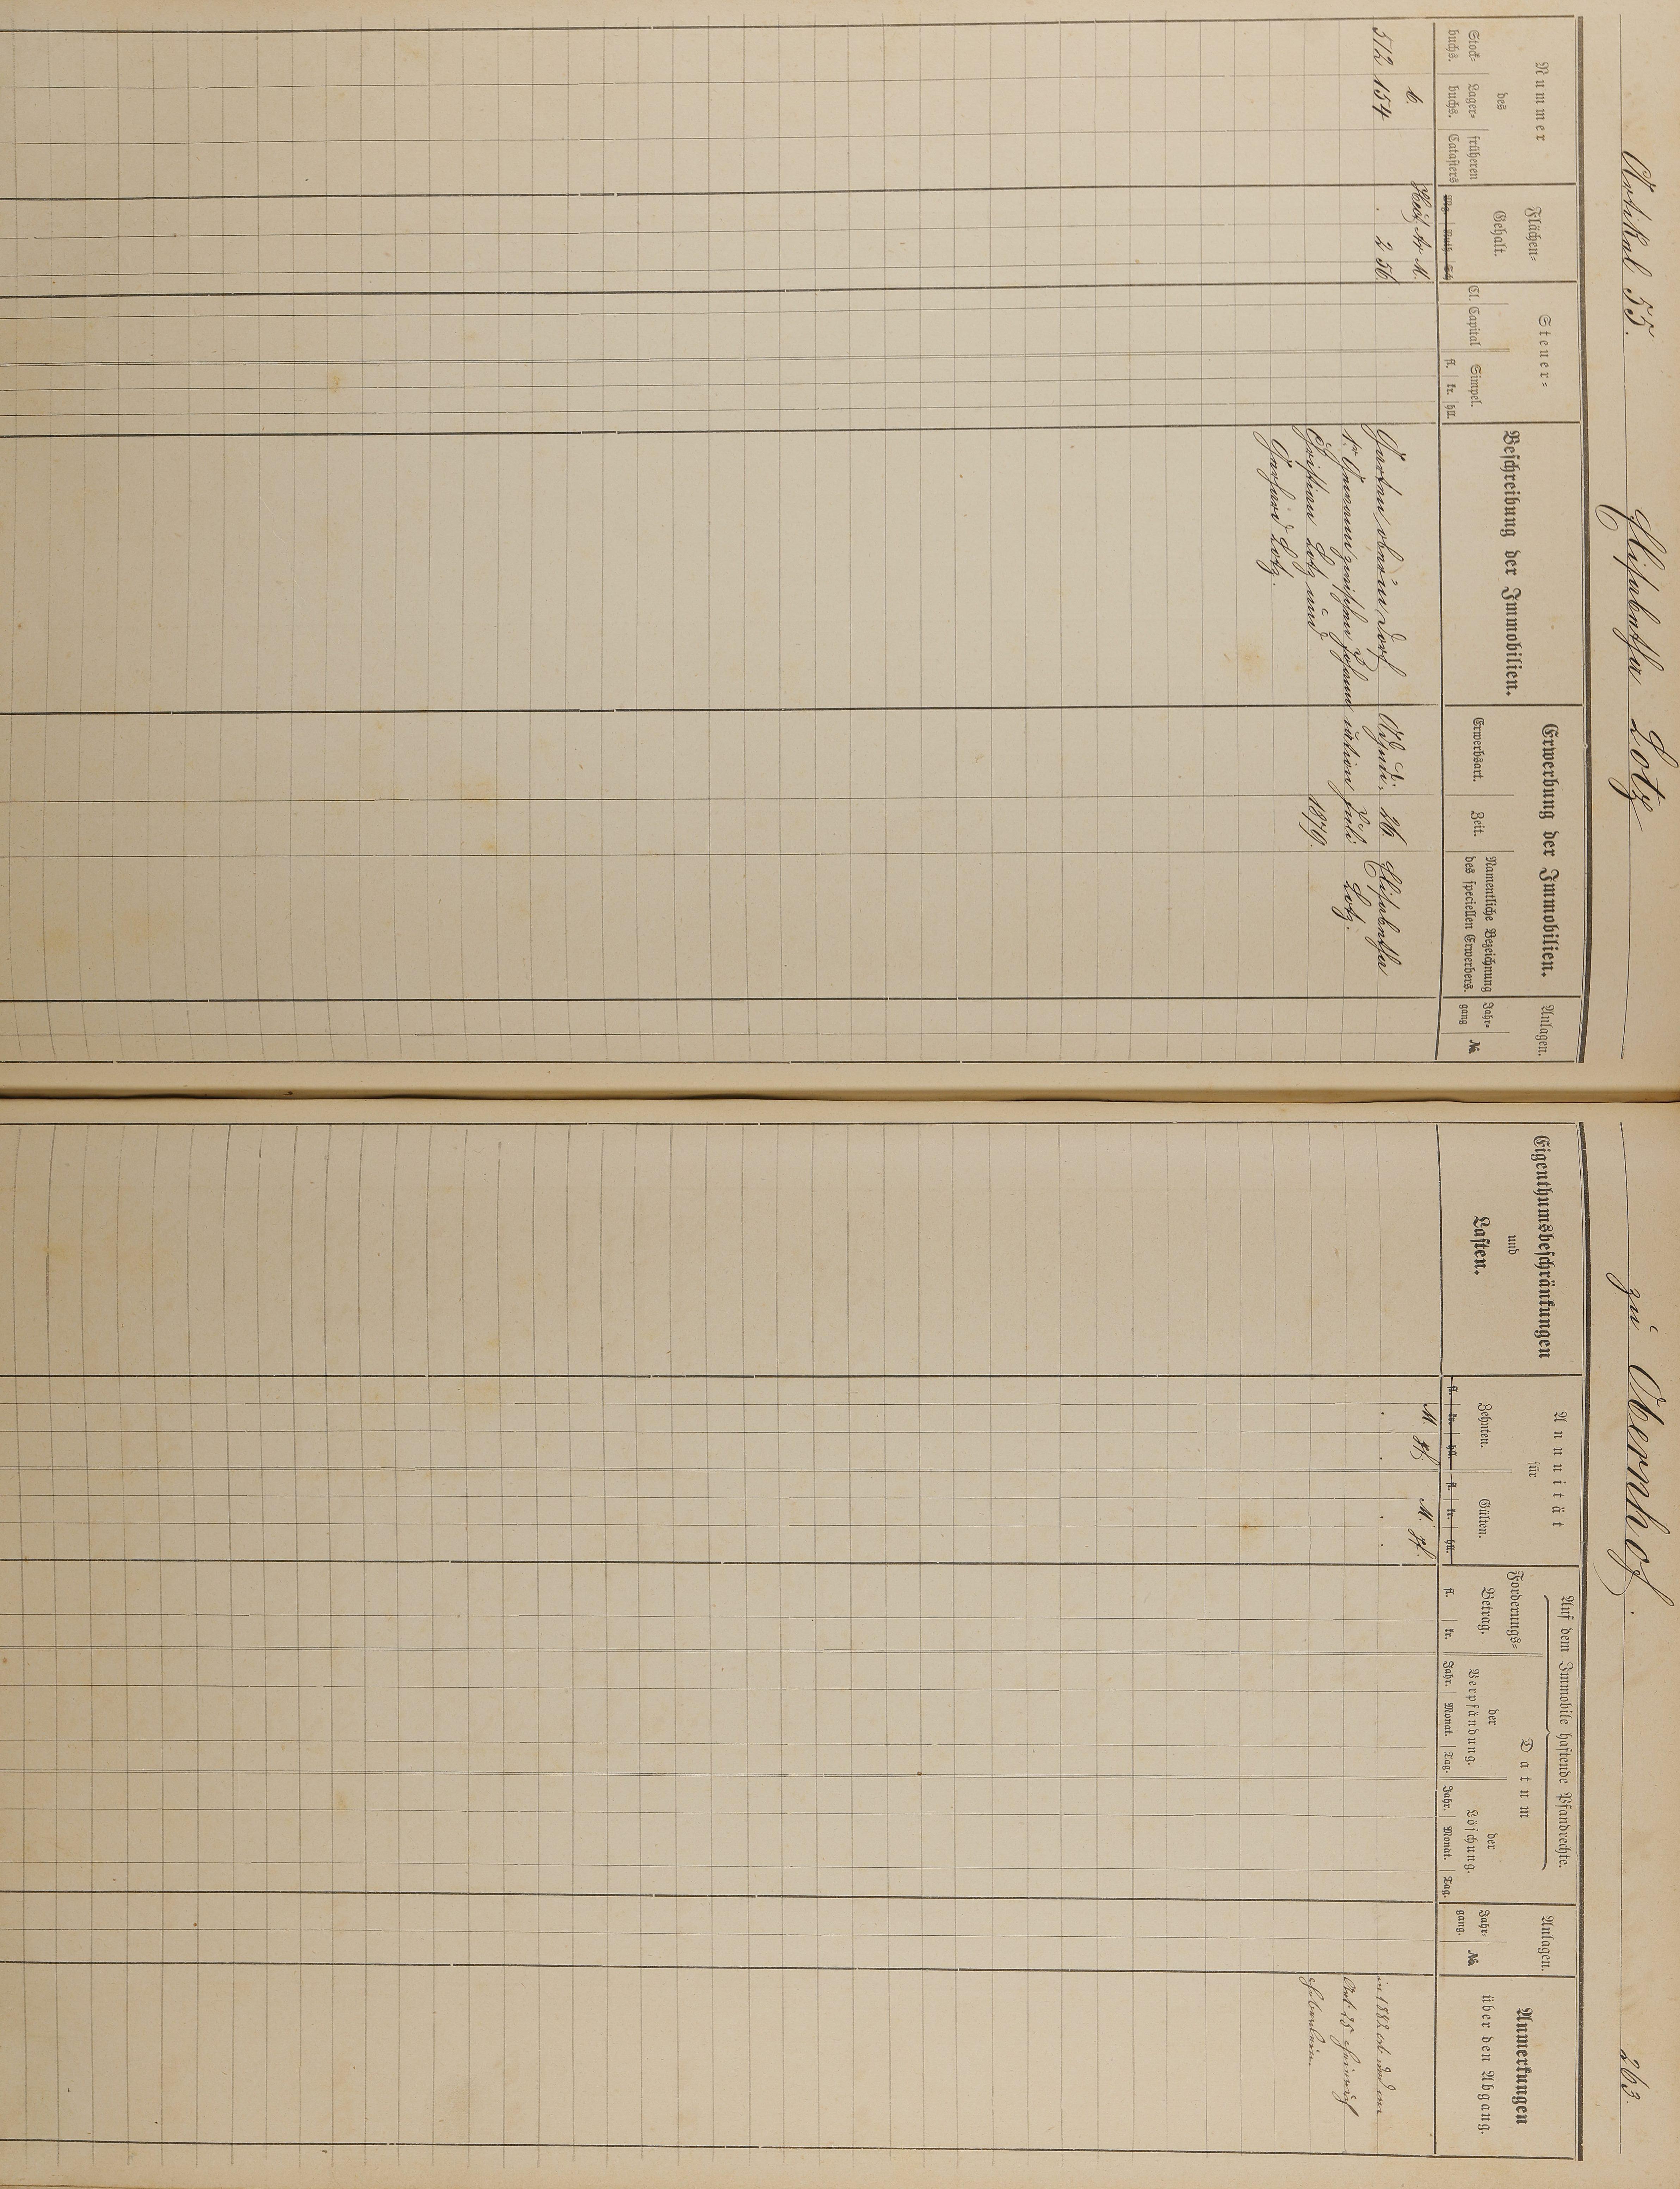 Artikel 55. Elisabetha Lotz
zu Obernhof. 263.
Nummer
des
Stock-
buchs.
Lager-
buchs.
früheren
Catasters
Flächen-
Gehalt.
Mg. Ruth. Sch.
Steuer-
Cl. Capital
Simpel.
fl. kr. hll.
Beschreibung der Immobilien.
Erwerbung der Immobilien.
Erwerbsart.
Zeit.
Namentliche Bezeichnung
des speciellen Erwerbers.
Anlagen.
Jahr-
gang
№
b.
Ar M.
512 154 . 2 56
Garten oben im Dorf
1r Gewann zwischen Johann
Christian Lotz und
Gerhard Lotz.
Adjudi-
cation
26
Juli
1879.
Elisabetha
Lotz.
Eigenthumsbeschränkungen
und
Lasten.
Annuität
für
Zehnten.
fl. kr. hll.
Gülten.
fl. kr. hll.
Auf dem Immobile haftende Pfandrechte.
Forderungs-
Betrag.
fl. kr.
Datum
der
Verpfändung.
Jahr. Monat. Tag.
der
Löschung.
Jahr. Monat. Tag.
Anlagen.
Jahr-
gang.
№
Anmerkungen
über den Abgang.
M. Pf. M. Pf.
in 1882
Art. 25 Heinrich